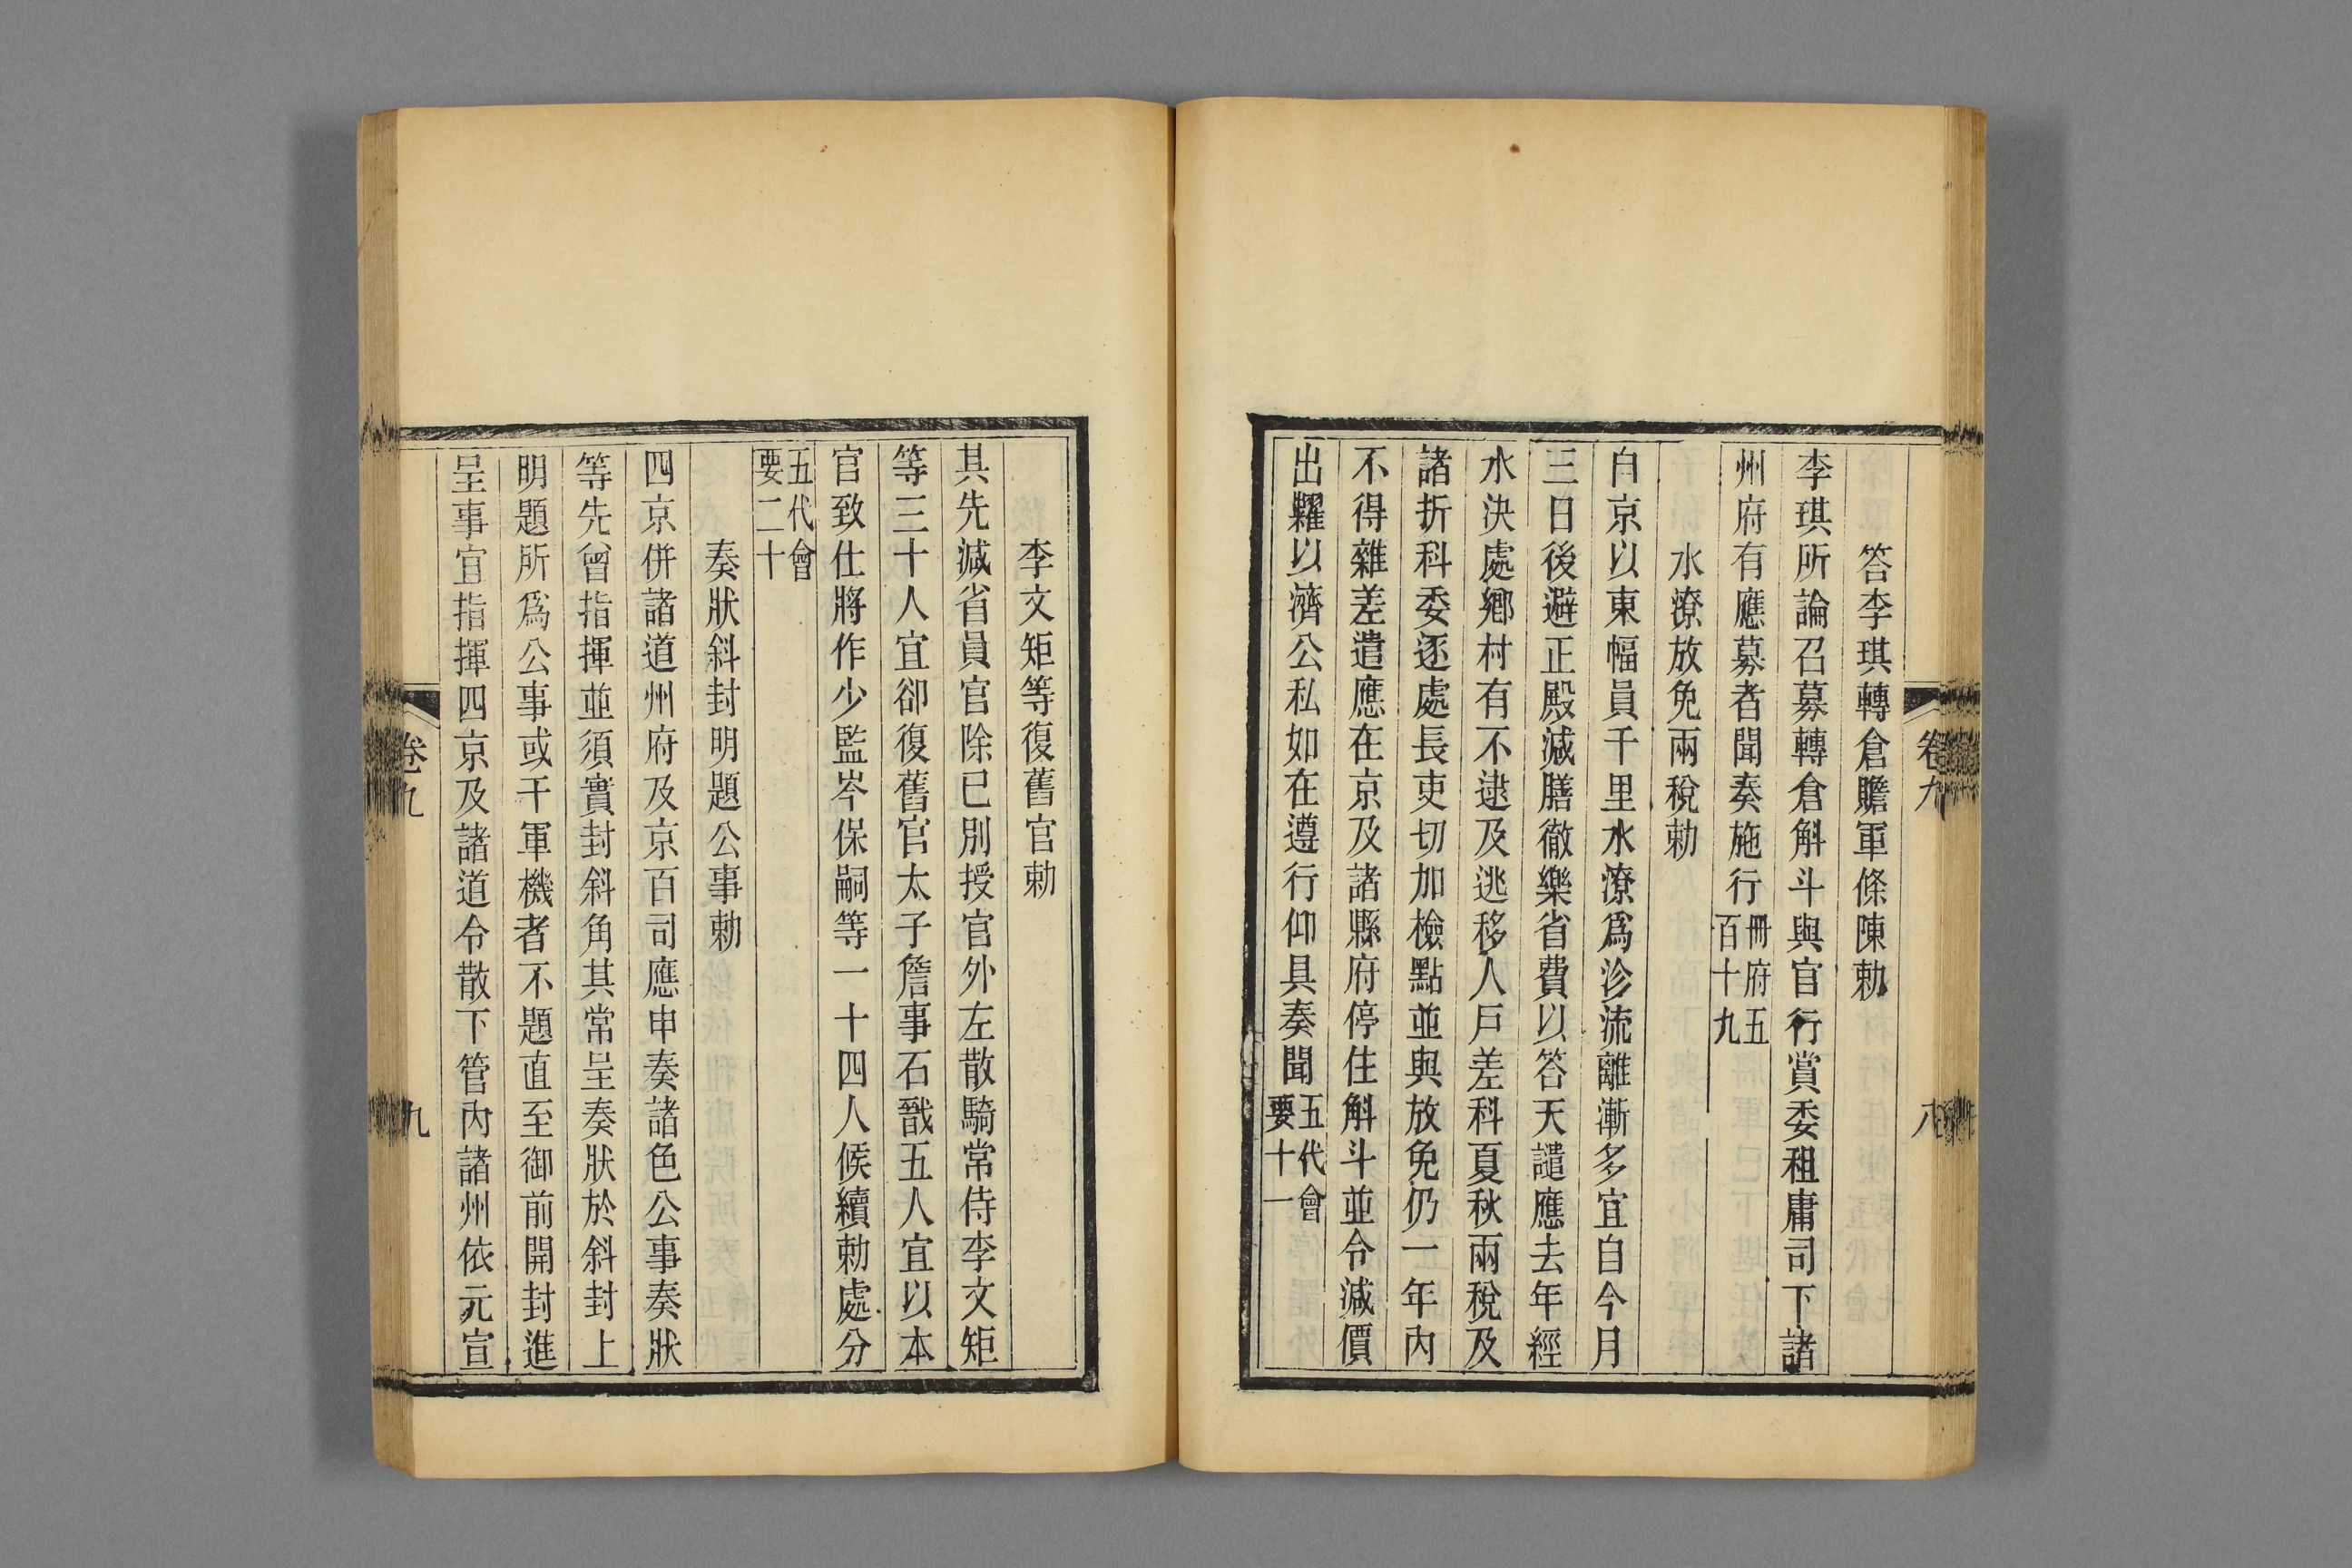 答李琪轉倉贍軍條陳勅
李琪所論召募轉倉斛斗與官行賞委租庸司下諸
州府有應募者聞奏施行冊府五百十九
水潦放免兩稅勅
自京以東幅員千里水潦爲沴流離漸多宜自今月
三日後避正殿減膳徹樂省費以答天譴應去年經
水決處鄉村有不逮及逃移人戶差科夏秋兩稅及
諸折科委逐處長吏切加檢點並與放免仍一年內
不得雜差遣應在京及諸縣府停住斛斗並令減價
出糶以濟公私如在遵行仰具奏聞五代會要十一
卷九
八
李文矩等復舊官勅
其先減省員官除已別授官外左散騎常侍李文矩
等三十人宜卻復舊官太子詹事石戩五人宜以本
官致仕將作少監岑保嗣等一十四人候續勅處分
五代會要二十
奏狀斜封明題公事勅
四京併諸道州府及京百司應申奏諸色公事奏狀
等先曾指揮並須實封斜角其常呈奏狀於斜封上
明題所爲公事或干軍機者不題直至御前開封進
呈事宜指揮四京及諸道令散下管內諸州依元宣
卷九
九